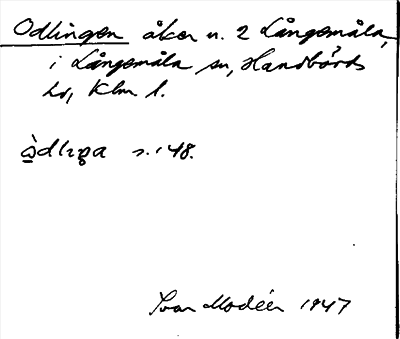 Odlingen åker n. 2 Långemåla,
i Långemåla sn, Handbörds
hd, Klm l.
s. 148.
Ivar Modéer 1947